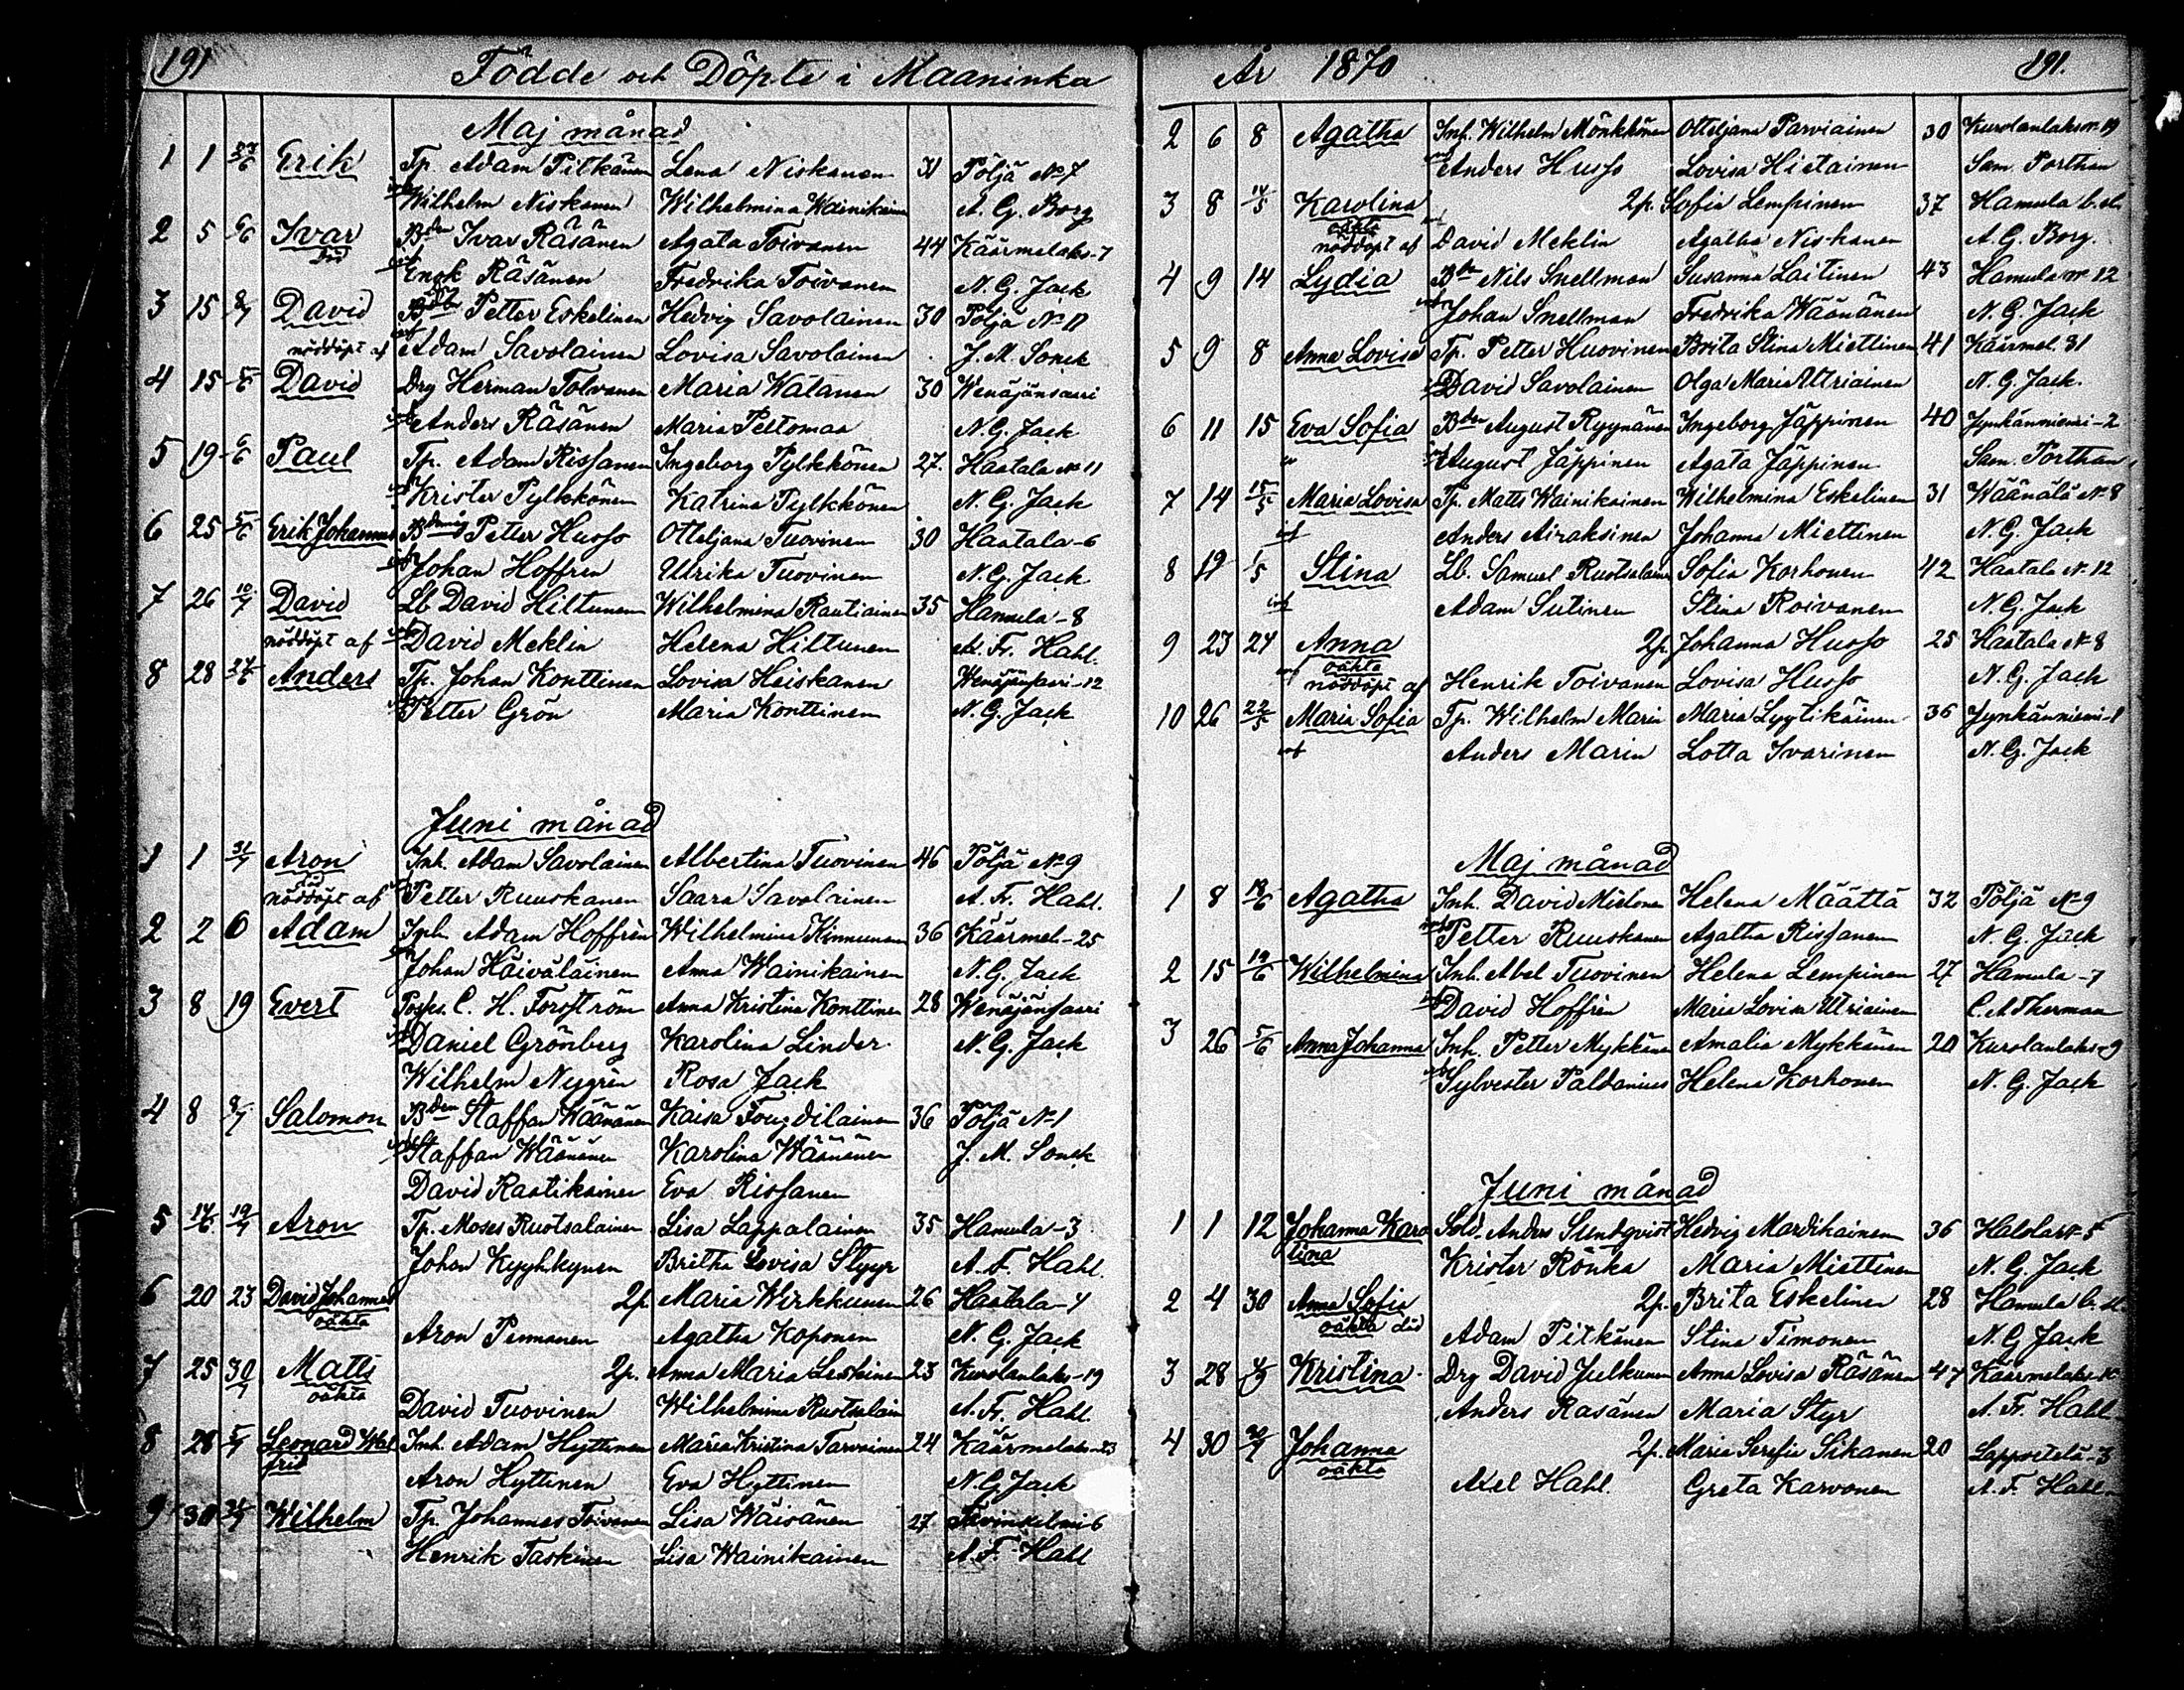 191 Födde och Döpte i Maaninka
Maj månad
1 1 27/6 Erik Tp. Adam Pitkänen Lena Niskanen 31 Pöljä No 7
Wilhelm Niskanen Wilhelmina Wainikainen A. G. Borg
2 5 6/6 Ivar Bden Ivar Räsänen Agata Toivanen 44 Käärmelaks-7
död Enok Räsänen Fredrika Toivanen N. G. Jack
3 15 8/7 David Petter Eskelinen Hedvig Savolainen 30 Pöljä No 11
nöddöpt af Adam Savolainen Lovisa Savolainen J. M. Sonck
4 15 5/6 David Drg Herman Tolvanen Maria Watanen 30 Wenäjänsaari
Anders Räsänen Maria Peltomaa N. G. Jack
5 19 6/6 Paul Tp. Adam Rissanen Ingeborg Pylkkönen 27. Haatala No 11
Krister Pylkkönen Katrina Pylkkönen N. G. Jack
6 25 5/6 Erik Johannes Petter Husso Otteljana Tuovinen 30 Haatala-6
Johan Hoffren Ulrika Tuovinen N. G. Jack
7 26 10/7 David Lb David Hiltunen Wilhelmina Rautiainen 35 Hamula-8
nöddöpt af David Meklin Helena Hiltunen A. Fr. Hahl.
8 28 27/6 Anders Tp. Johan Konttinen Lovisa Heiskanen Wenäjänsaari-12
Petter Grön Maria Konttinen N. G. Jack
Juni månad
1 1 31/7 Aron Inh. Adam Savolainen Albertina Tuovinen 46 Pöljä No 9
död
nöddöpt af Petter Ruuskanen Saara Savolainen A. Fr. Hahl.
2 2 6 Adam Inh. Adam Hoffrèn Wilhelmina Kinnunen 36 Käärmel-25
Johan Häiväläinen Anna Wainikainen N. G. Jack
3 8 19 Evert C. H. Forsström Anna Kristina Konttinen 28 Wenäjänsaari
Daniel Grönberg Karolina Linder N. G. Jack
Wilhelm Nygrèn Rosa Jack
4 8 8/7 Salomon Bden Staffan Wäänänen Kaisa 36 Pöljä No 1
Staffan Wäänänen Karolina Wäänänen J. M. Sonck
David Raatikainen Eva Rissanen
5 14/6 19/7 Aron Tp. Moses Ruotsalainen Lisa Lappalainen 35 Hamula-3
Johan Kyyhkynen Britha Lovisa Styyr A. F. Hahl.
6 20 23 David Johannes 2p. Maria Wirkkunen 26 Haatala-4
oäkta Aron Pennanen Agatha Koponen N. G. Jack
7 25 30/7 Matts 2p. Anna Maria Leskinen 23 Kurolanlaks-19
oäkta David Tuovinen Wilhelmina Ruotsalain A. Fr. Hahl.
8 28 5/7 Leonard Wal Inh. Adam Hyttinen Maria Kristina Tarvainen 24 Käärmelaks-23
frid Aron Hyttinen Eva Hyttinen N. G. Jack
9 30 31/7 Wilhelm Tp. Johannes Toivanen Lisa Wäisänen 27
Henrik Taskinen Lisa Wainikainen A. F. Hahl
År 1870 191.
2 6 8 Agatha Inh. Wilhelm Mönkkönen Otteljana Parviainen 30 Kurolanlaks No 19
Anders Husso Lovisa Hietainen Sam. Porthan
3 8 14/5 Karolina 2p. Sofia Lempinen 37 Hamula b. st.
oäkta
nöddöpt af David Meklin Agatha Niskanen A. G. Borg.
4 9 14 Lydia Nils Snellman Susanna Laitinen 43 Hamula No 12
Johan Snellman Fredrika Wäänänen N. G. Jack
5 9 8 Anna Lovisa Tp. Petter Huovinen Brita Stina Miettinen 41 Käärmel. 31
David Savolainen Olga Maria Utriainen N. G. Jack.
6 11 15 Eva Sofia Bden August Ryynänen Ingeborg Jäppinen 40 Jynkänniemi-2
August Jäppinen Agata Jäppinen Sam. Porthan
7 14 15/5 Maria Lovisa Tp. Matts Wainikainen Wilhelmina Eskelinen 31 Wäänälä No 8
Anders Airaksinen Johanna Miettinen N. G. Jack
8 19 1/5 Stina Lb. Samuel Ruotsalainen Sofia Korhonen 42 Haatala N. 12
Adam Sutinen Stina Roivanen N. G. Jack
9 23 24 Anna 2p. Johanna Husso 25 Haatala No 8
oäkta
nöddöpt af Henrik Toivanen Lovisa Husso N. G. Jack
10 26 22/5 Maria Sofia Tp. Wilhelm Marin Maria Lyytikäinen 36 Jynkänniemi-1
Anders Marin Lotta Ivarinen N. G. Jack
Maj månad
1 8 18/6 Agatha Inh. David Mielonen Helena Määttä 32 Pöljä No 9
Petter Ruuskanen Agatha Rissanen N. G. Jack
2 15 19/6 Wilhelmina Inh. Abel Tuovinen Helena Lempinen 27 Hamula-7
David Hoffrèn Maria Lovisa Utriainen C. A. Therman
3 26 5/6 Anna Johanna Inh. Petter Mykkänen Amalia Mykkänen 20 Kurolanlaks-9
Sylvester Paldanius Helena Korhonen N. G. Jack
Juni månad
1 1 12 Johanna Karo Sold. Anders Sundqvist Hedvig Mardikainen 36
lina Krister Rönkä Maria Miettinen N. G. Jack
2 4 30 Anna Sofia 2p. Brita Eskelinen 28 Hamula b. st
oäkta död Adam Pitkänen Stina Timonen N. G. Jack
3 28 Kristina Drg David Julkunen Anna Lovisa Räsänen 47
Anders Räsänen Maria Styr A. Fr. Hahl
4 30 Johanna 2p. Maria Serefia Sikanen 20 Lappetelä-3
oäkta Axel Hahl. Greta Karvonen A. F. Hahl